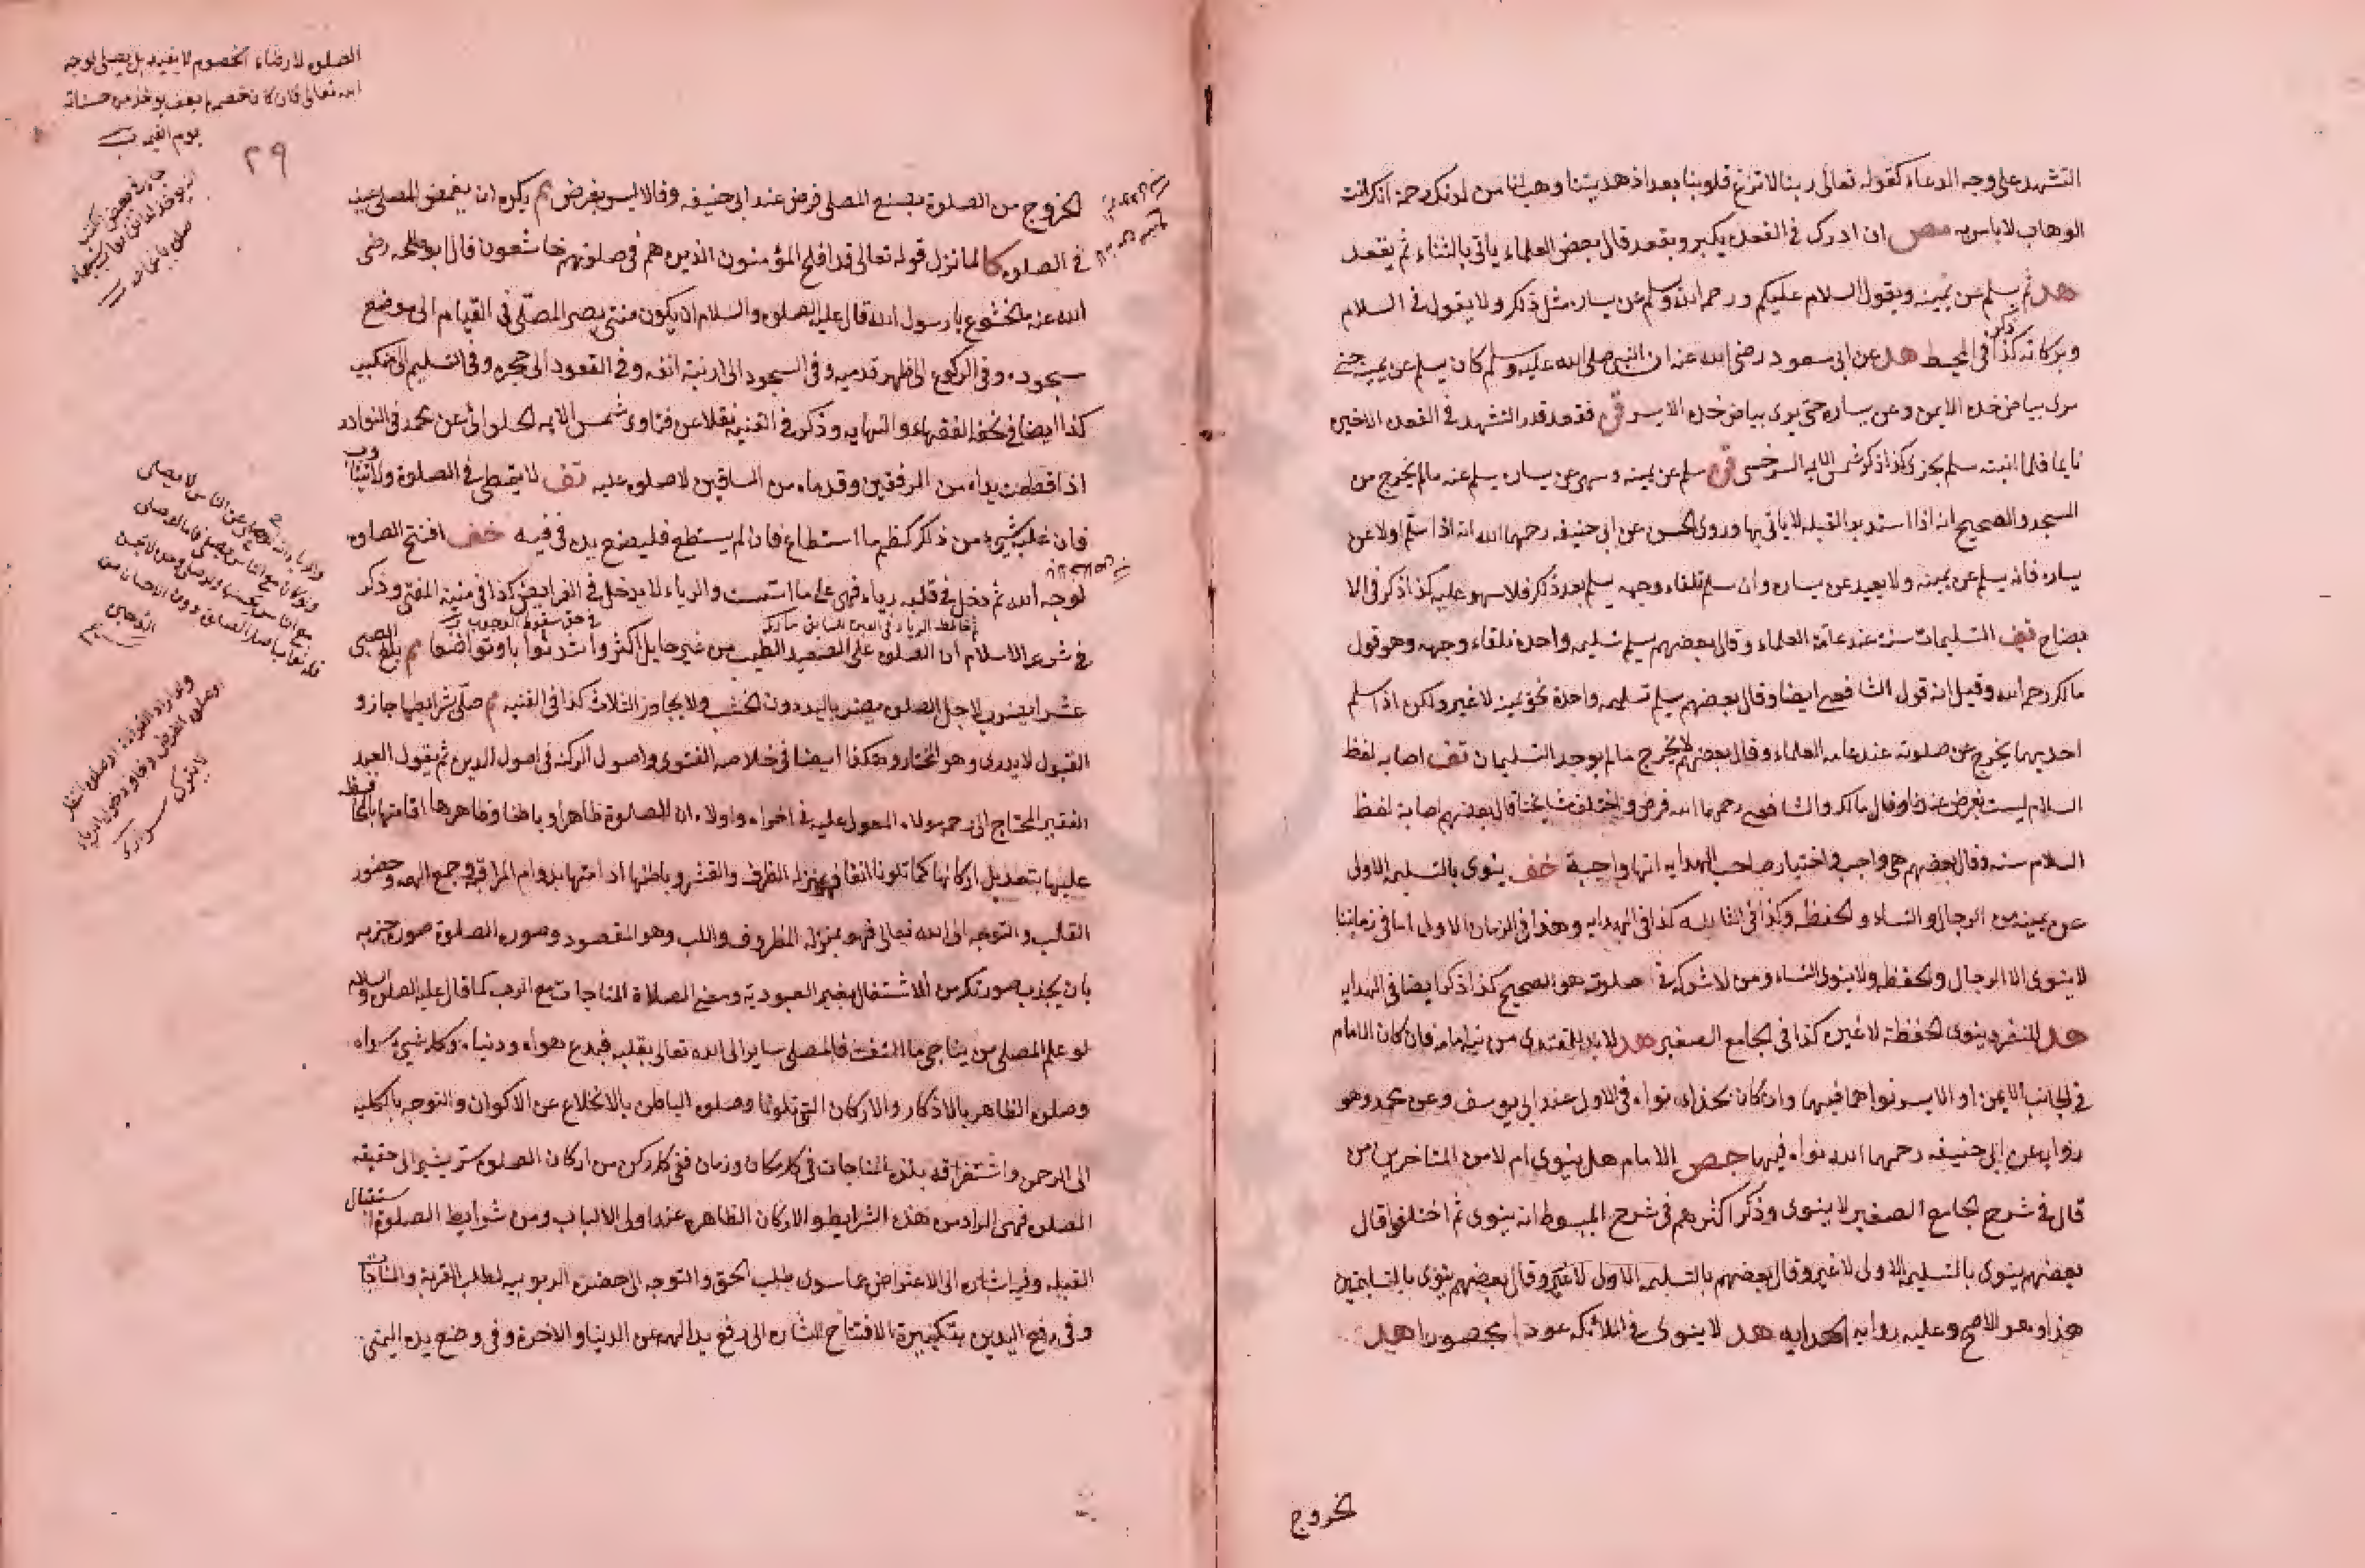 التشهد على وجه الدعاء كقوله تعالى ربنا لا تزغ قلوبنا بعد اذ هديتنا وهب لنا من لدنك رحمة انك انت
الوهاب لا باس به مص ان ادرك في القعدة يكبر ويقعد قال بعض العلماء ياتي بالثناء ثم يقعد
هد ثم يسلم عن يمينه ويقول السلام عليكم ورحمة الله وسلم عن يساره مثل ذلك ولا يقول في السلام
وبركاته كذا ذكر في المحيط هد عن ابي مسعود رضي الله عنه ان النبي صلى الله عليه وسلم كان يسلم عن يمينه حتى
يرى بياض خده الايمن وعن يساره حتى يرى بياض خده الايسر قن فقعد قدر التشهد في القعدة الاخيرة
نايما فلما انتبه سلم يجز كذا ذكر شمس الايمه السرخسي قن سلم عن يمينه وسهى عن يساره يسلم عنه مالم يخرج من
المسجد والصحيح انه اذا استدبر القبله لا ياتي بها وروى الحسن عن ابي حنيفه رحمهما الله انه اذا سلم اولا عن
يساره فانه يسلم عن يمينه ولا يعيد عن يساره وان سلم تلقاء وجهه يسلم بعد ذلك فلا سهو عليه كذا ذكر في الا
يضاح تف التسليمات سنة عند عامة العلماء وقال بعضهم يسلم تسليمه واحدة تلقاء وجهه وهو قول
مالك رحمه الله وقيل انه قول الشافعي ايضا وقال بعضهم يسلم تسليمه واحدة نحو يمينه لا غير ولكن اذا سلم
احديهما يخرج عن صلوته عند عامه العلماء وقال بعضهم لا يخرج مالم يوجد التسليمان تف اصابه لفظ
السلام ليست بفرض عندنا وقال مالك والشافعي رحمهما الله فرض واختلف مشايخنا قال بعضهم اصابه لفظ
السلام سنه وقال بعضهم هي واجب في اختيار صاحب الهدايه انها واجبة خف ينوي بالتسليمه الاولى
عن يمينه من الرجال والنساء والحفظه وكذا في الثانيه كذا في الهدايه وهذا في الزمان الاول اما في زماننا
لا ينوي الا الرجال والحفظه ولا ينوي النساء ومن لا شركه في صلوته هو الصحيح كذا ذكر ايضا في الهدايه
هد المنفرد ينوي الحفظة لا غيره كذا في الجامع الصغير هد لا بد للمقتدي من نية امامه فان كان الامام
في الجانب الايمن او الايسر نواهما فيهما وان كان بحذاه نواه في الاول عند ابي يوسف وعن محمد وهو
روايه عن ابي حنيفه رحمهما الله نواه فيهما جص الامام هل ينوي ام لا من المتاخرين من
قال في شرح الجامع الصغير لا ينوي وذكر اكثرهم في شرح المبسوط انه ينوي ثم اختلفوا قال
بعضهم ينوي بالتسليمه الاولى لا غير وقال بعضهم بالتسليمه الاولى لا غير وقال بعضهم ينوي بالتسليمتين
هذا وهو الاصح وعليه روايه الهدايه هد لا ينوي في الملائكه عددا محصورا هد
لخروج
الخروج من الصلوة بصنع المصلي فرض عند ابي حنيفه وقالا ليس بفرض م يكره ان يغمض المصلي عينيه
في الصلوه كا لما نزل قوله تعالى قد افلح المؤمنون الذين هم في صلوتهم خاشعون قال ابو طلحه رضي
الله عنه ما الخشوع يا رسول الله قال عليه الصلوه والسلام ان يكون منتهى بصر المصلي في القيام الى موضع
سجوده وفي الركوع الى ظهر قدميه وفي السجود الى ارنبة انفه وفي القعود الى حجره وفي التسليم الى منكبيه
كذا ايضا في تحفه الفقهاء والنهايه وذكر في القنيه نقلا عن فتاوى شمس الايمه الحلواني عن محمد في النوادر
اذا قطعت يداه من المرفقين وقدماه من الساقين لا صلوه عليه تف لا يتمطى في الصلوة ولا يتثاوب
فان غلب شيء من ذلك كظم ما استطاع فان لم يستطع فليضع يده في فيه خف افتتح الصلوه
لوجه الله ثم دخل في قلبه رياء فهي على ما اسست والرياء لا يدخل في الفرايض كذا في منية المفتي وذكر
في حق سقوط الوجوب
في شرعة الاسلام ان الصلوه على الصعيد الطيب من غير حايل اكثر وا وتواضعا م بلغ الصبي
عشرا يضرب لاجل الصلوه يضرب باليد دون الخشب ولا يجاوز الثلاث كذا في القنيه م صلى بشرايطها جاز و
القبول لا يدرى وهو المختار وهكذا ايضا في خلاصه الفتوى واصول الدين ثم يقول العبد
الفقير المحتاج الى رحمة مولاه المعول عليه في اخراه واولاه ان للصلوة ظاهرا وباطنا وظاهرها اقامتها بالمحافظه
عليها بتعديل اركانها كما تلونا انفا فهو بمنزله الظرف والقشر وباطنها ادامتها بدوام المراقبة وجمع الهمه وحضور
القلب والتوجه الى الله تعالى فهو بمنزله المظروف واللب وهو المقصود وصورة الصلوة صورة جذبه
بان يجذب صورتك من الاشتغال بغير العبودية ومعنى الصلاة المناجات مع الرب كما قال عليه الصلوه والسلام
لو علم المصلي من يناجي ما التفت فالمصلي ساير الى الله تعالى بقلبه فيدع هواه ودنياه وكل شيء سواه
وصلوه الظاهر بالاذكار والاركان التي تلونا وصلوه الباطن بالانخلاع عن الاكوان والتوجه بالكليه
الى الرحمن واستغراقه بلذة المناجات في كل مكان وزمان ففي كل ركن من اركان الصلوه سر يشير الى حقيقه
الصلوه فهي المراد من هذه الشرايط والاركان الظاهره عند اولى الالباب ومن شرايط الصلوة استقبال
القبله وفيه اشاره الى الاعراض عما سوى طلب الحق والتوجه الى حضرة الربوبيه لطلب القربة والمناجات
وفي رفع اليدين بتكبيرة الافتتاح اشاره الى رفع يد الهمه عن الدنيا والاخرة وفي وضع يده اليمنى
الصلوه لارضاء الخصوم لا يفيد بل يصلي لوجه
الله تعالى فان كان خصمه لم يعف يوخذ من حسناته
يوم القيمه
٢٩